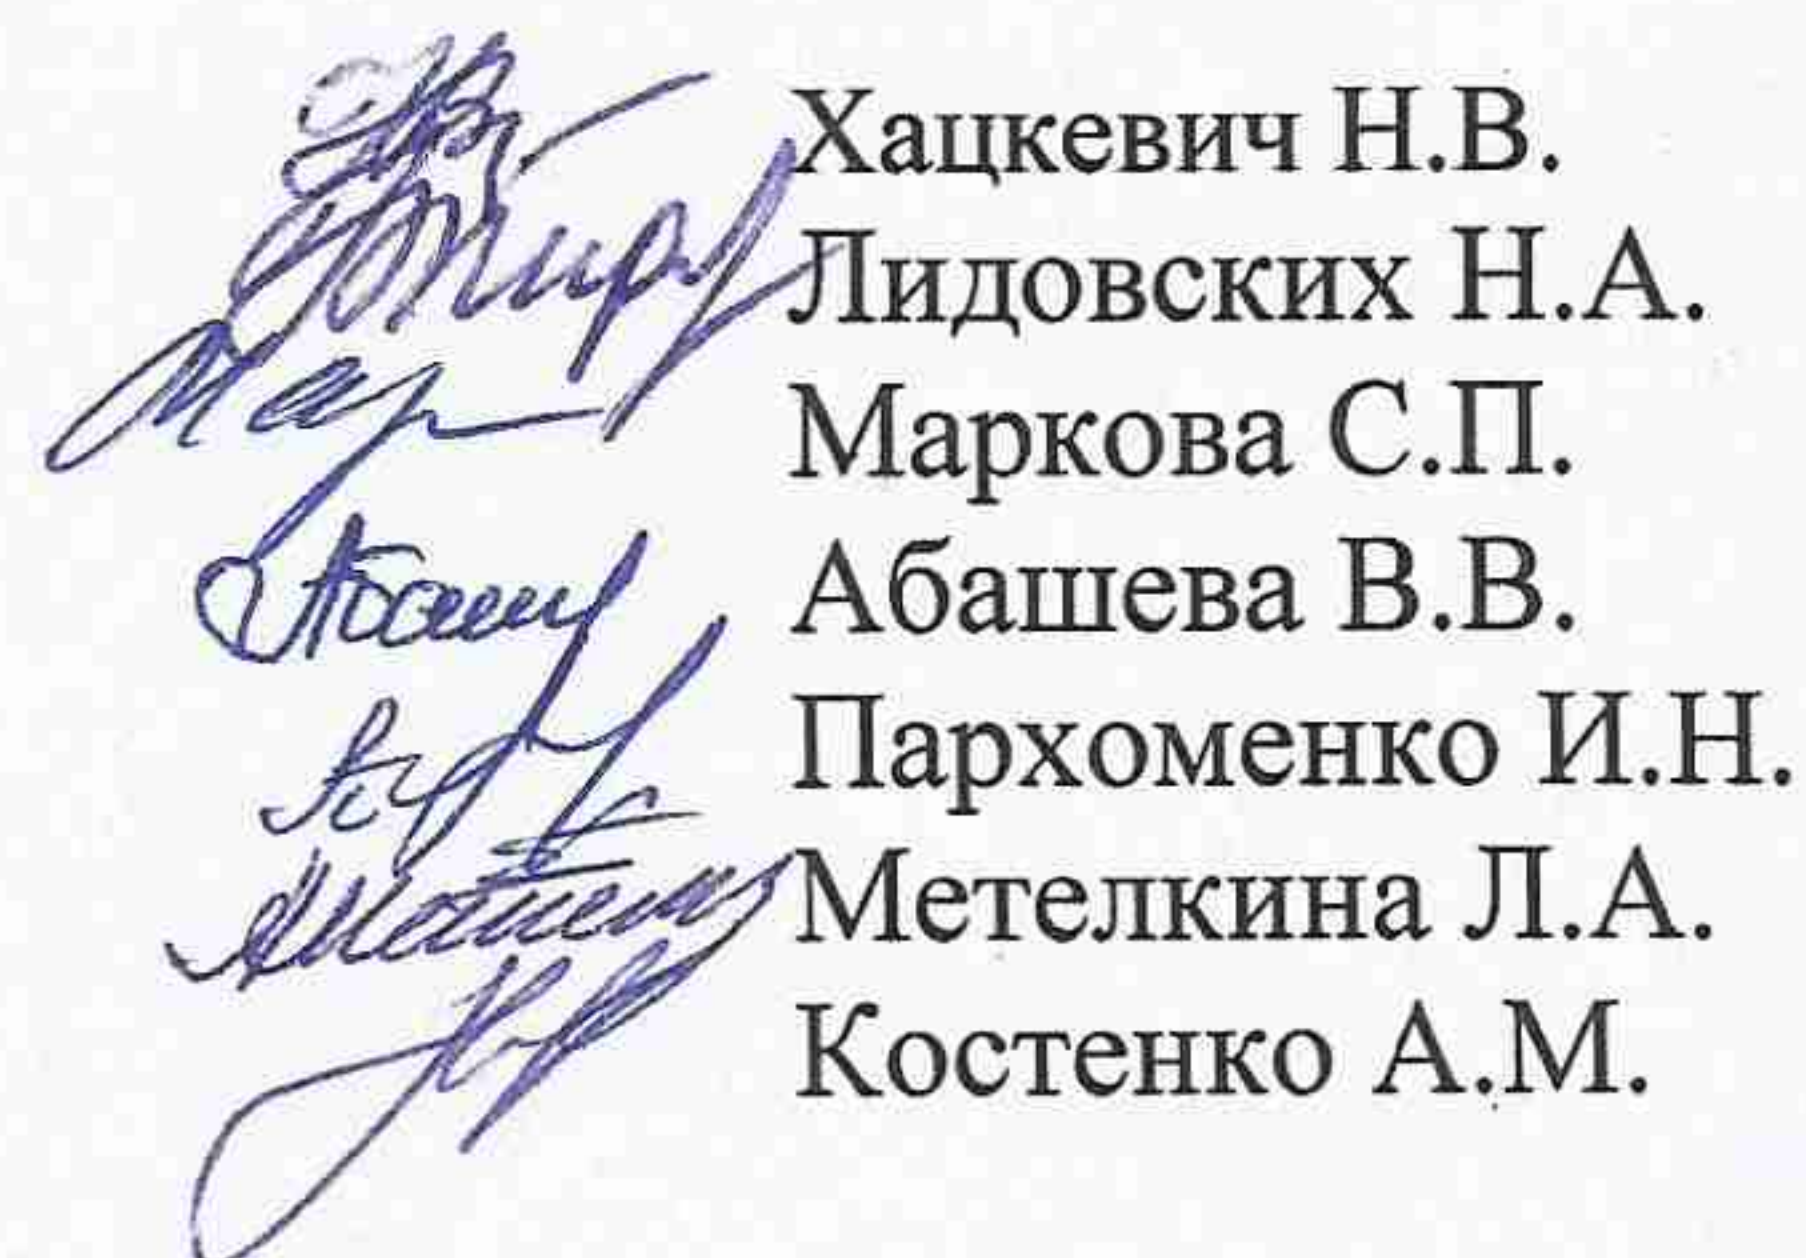 Хацкевич Н.В.
Лидовских Н.А.
Мар Маркова С.П.
Абаш Абашева В.В.
Пархоменко И.Н.
Метелкина Л.А.
Костенко А.М.